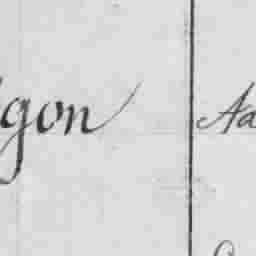 gon Aa